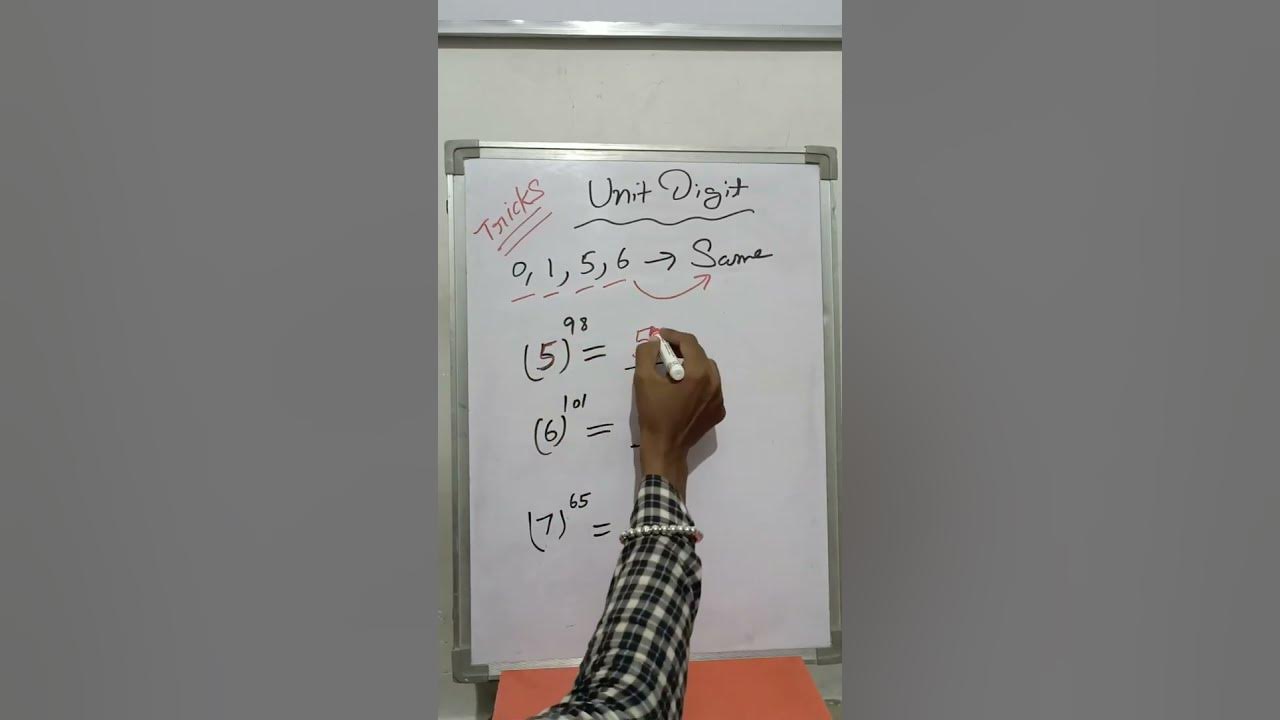 Tricks
Unit Digit
0, 1, 5, 6 → Same
(5)⁹⁸ = 5
(6)¹⁰¹ =
(7)⁶⁵ =